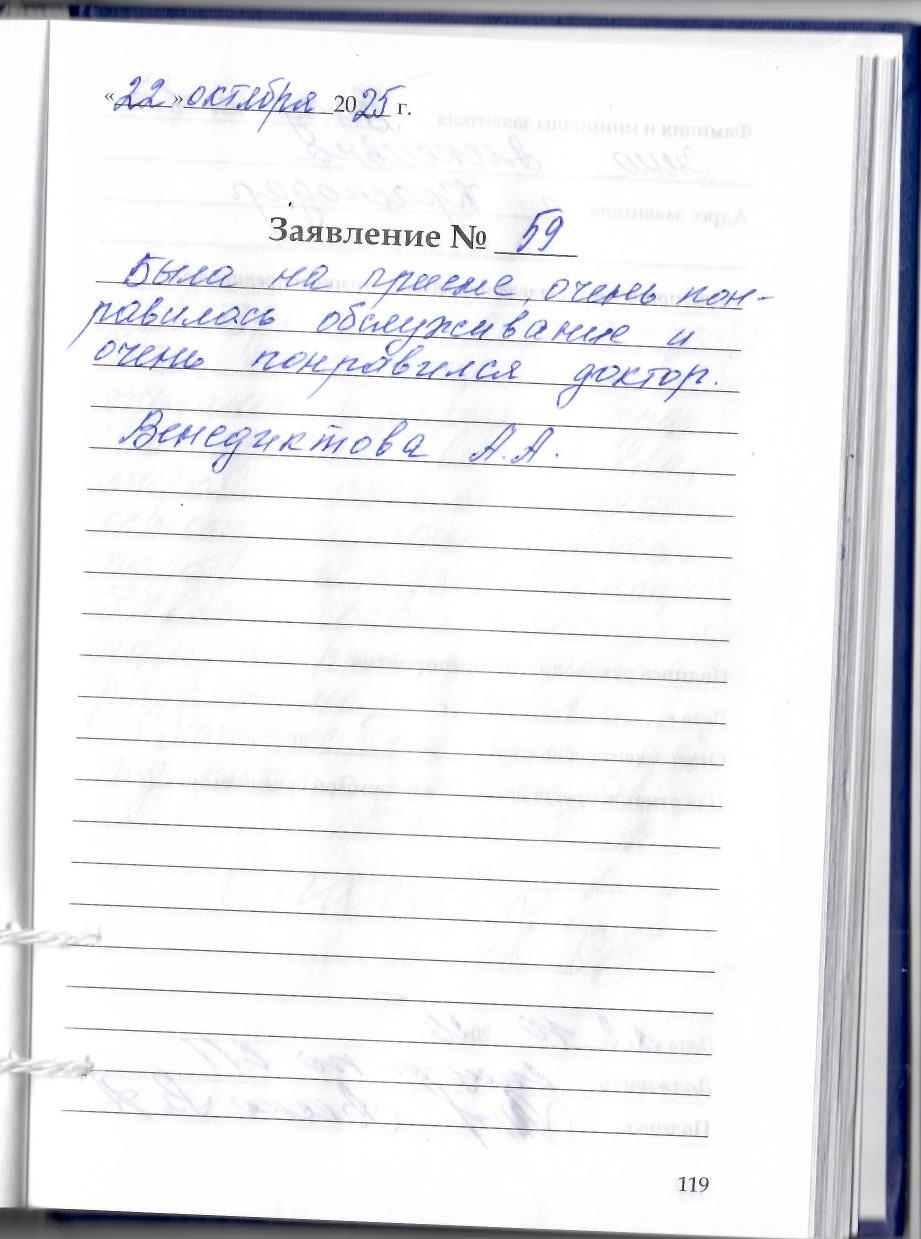 «22» октября 2025 г.
Заявление № 59
Была на приеме, очень пон-
равилась обслуживание и
очень понравился доктор.
Венедиктова А.А.
119